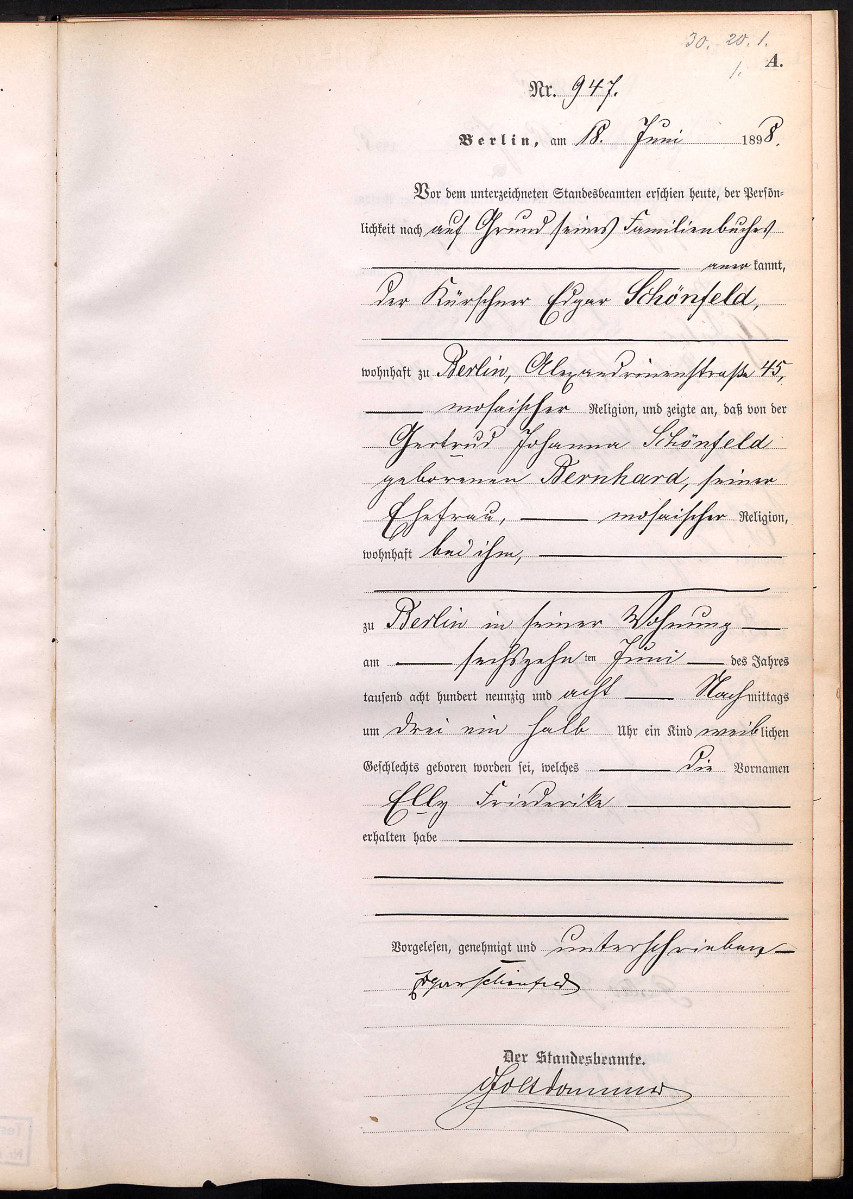 30. 20. 1.
1. A.
Nr. 947.
Berlin, am 18. Juni 1898.
Vor dem unterzeichneten Standesbeamten erschien heute, der Persön-
lichkeit nach auf Grund seines Familienbuches
anerkannt,
der Kürschner Edgar Schönfeld,
wohnhaft zu Berlin, Alexandrinenstraße 45,
mosaischer Religion, und zeigte an, daß von der
Gertrud Johanna Schönfeld
geborenen Bernhard, seiner
Ehefrau, mosaischer Religion,
wohnhaft bei ihm,
zu Berlin in seiner Wohnung
am sechszehnten Juni des Jahres
tausend acht hundert neunzig und acht Nachmittags
um drei ein halb Uhr ein Kind weiblichen
Geschlechts geboren worden sei, welches die Vornamen
Elly Friederike
erhalten habe
Vorgelesen, genehmigt und unterschrieben
Edgar Schönfeld
Der Standesbeamte.